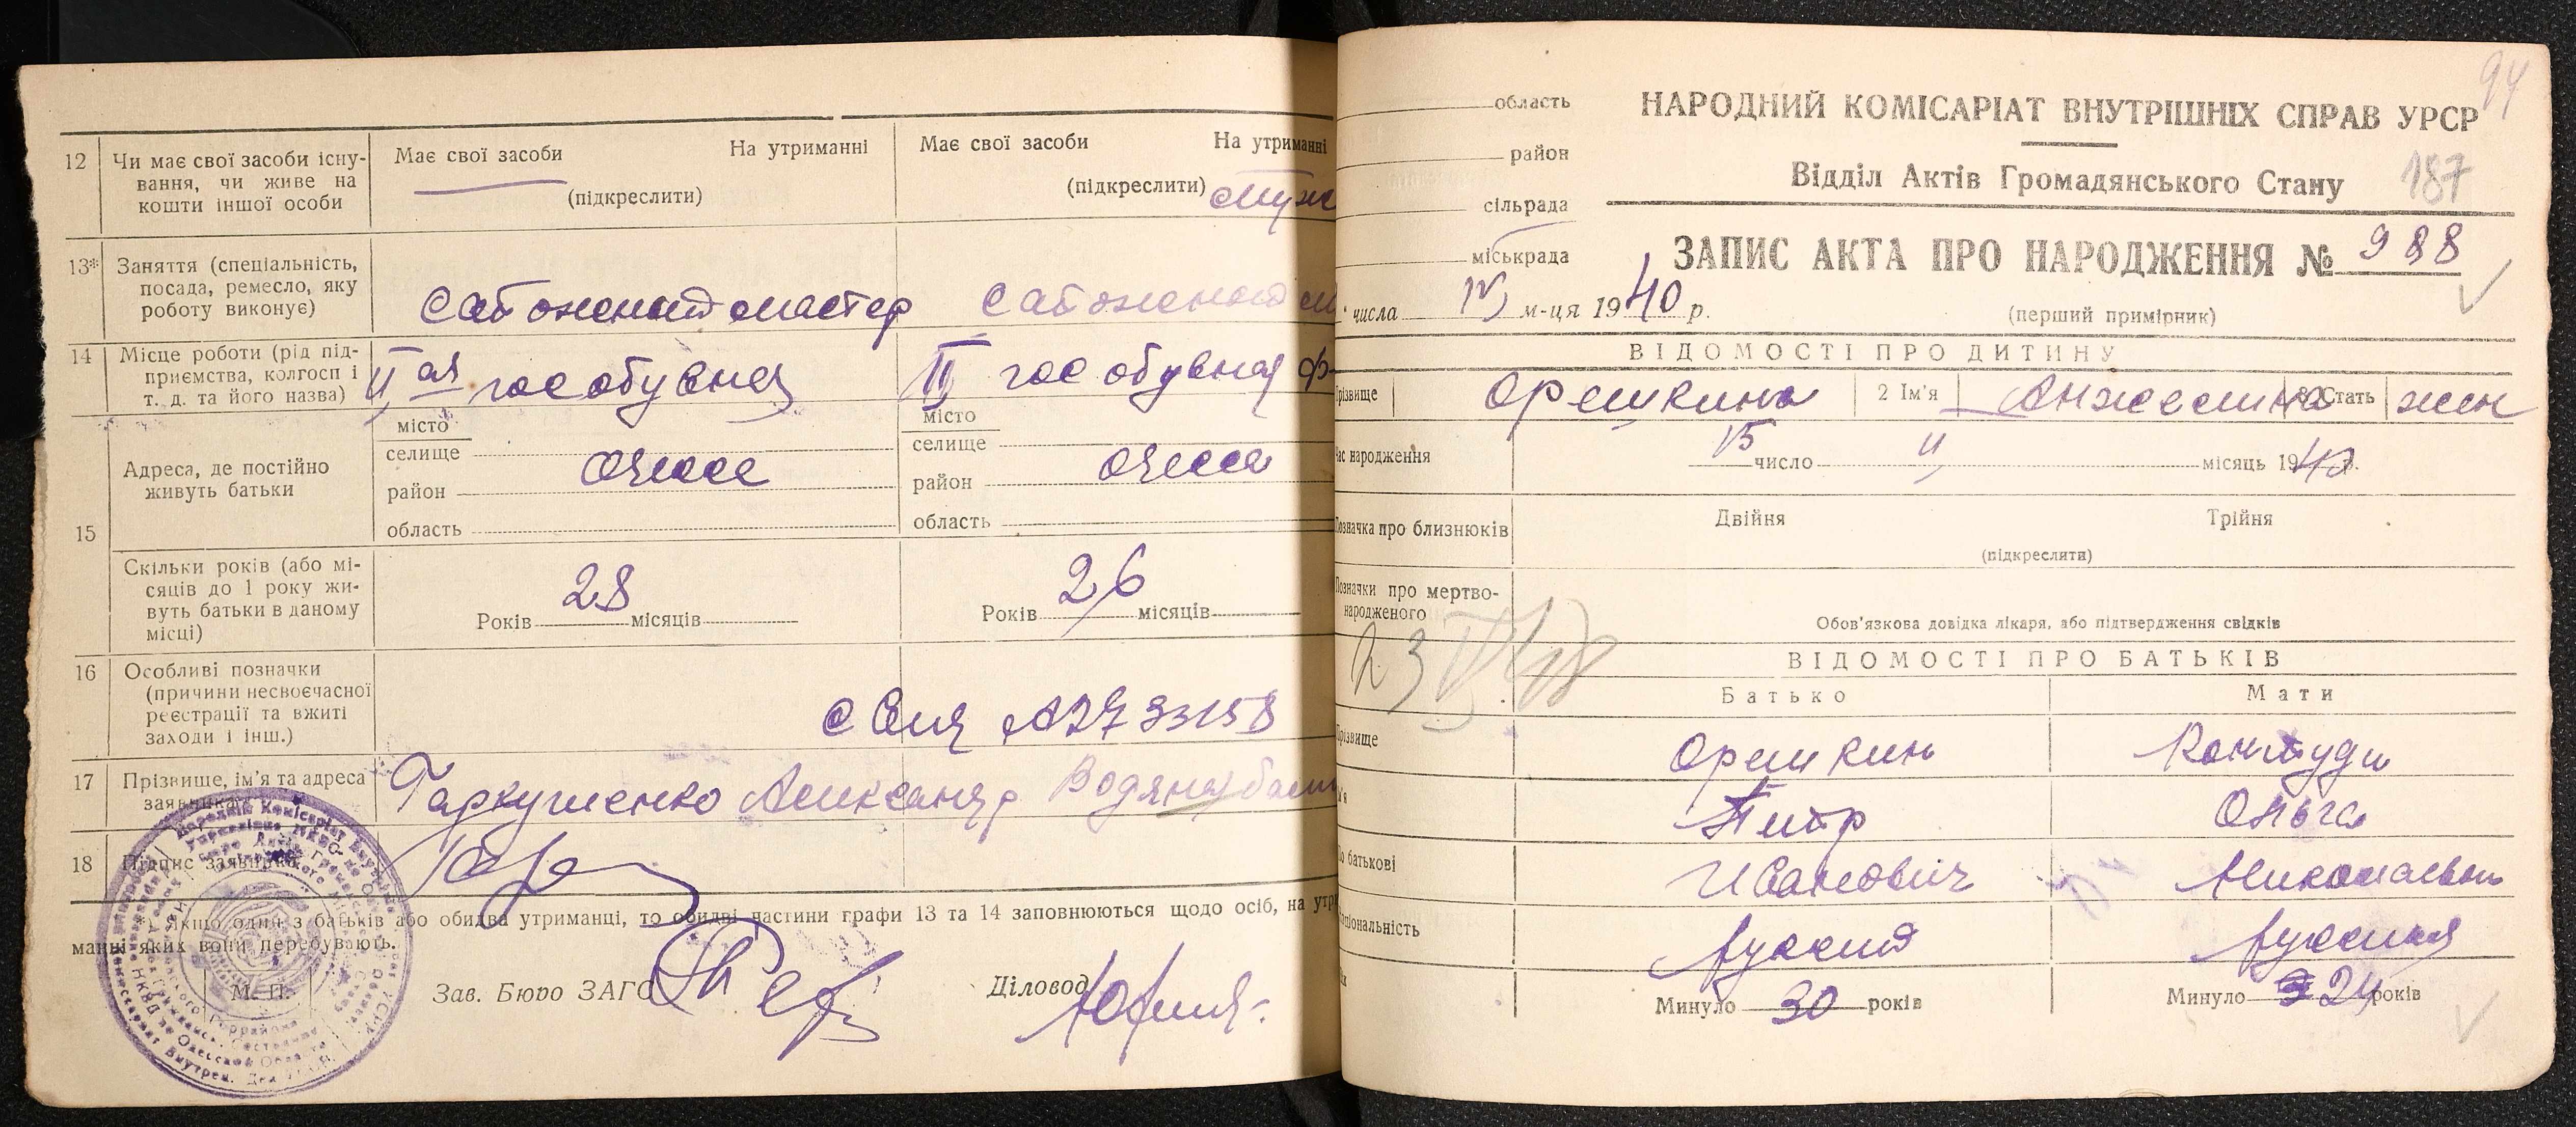 12 Чи має свої засоби існу-
вання, чи живе на
кошти іншої особи
Має свої засоби На утриманні
(підкреслити)
Має свої засоби На утриманні
(підкреслити)
13* Заняття (спеціальність,
посада, ремесло, яку
роботу виконує)
мастер
14 Місце роботи (рід під-
приємства, колгосп і
т. д. та його назва)
II ая гос обувная
II гос обувная ф-
15 Адреса, де постійно
живуть батьки
місто
селище
район
область
Одесса
місто
селище
район
область
Одесса
Скільки років (або мі-
сяців до 1 року жи-
вуть батьки в даному
місці)
Років 28 місяців
Років 26 місяців
16 Особливі позначки
(причини несвоєчасної
реєстрації та вжиті
заходи і інш.)
17 Прізвище, ім'я та адреса
заявника
Гаркушенко Александр Водяная
18 Підпис заявника
*) Якщо один з батьків або обидва утриманці, то обидві частини графи 13 та 14 заповнюються щодо осіб, на утри
манні яких вони перебувають.
М. П. Зав. Бюро ЗАГС Діловод
94
область
район
сільрада
міськрада
числа IV м-ця 1940 р.
НАРОДНИЙ КОМІСАРІАТ ВНУТРІШНІХ СПРАВ УРСР
Відділ Актів Громадянського Стану 187
ЗАПИС АКТА ПРО НАРОДЖЕННЯ № 988
(перший примірник)
ВІДОМОСТІ ПРО ДИТИНУ
Прізвище Орешкина 2 Ім'я Анжелина 3 Стать жен
Час народження 15 число II місяць 1940 р.
Позначка про близнюків Двійня Трійня
(підкреслити)
Позначки про мертво-
народженого
Обов'язкова довідка лікаря, або підтвердження свідків
ВІДОМОСТІ ПРО БАТЬКІВ
Батько Мати
Прізвище Орешкин Контуди
Петр Ольга
по батькові Иванович Николаевна
національність русский русская
Минуло 30 років Минуло 24 років